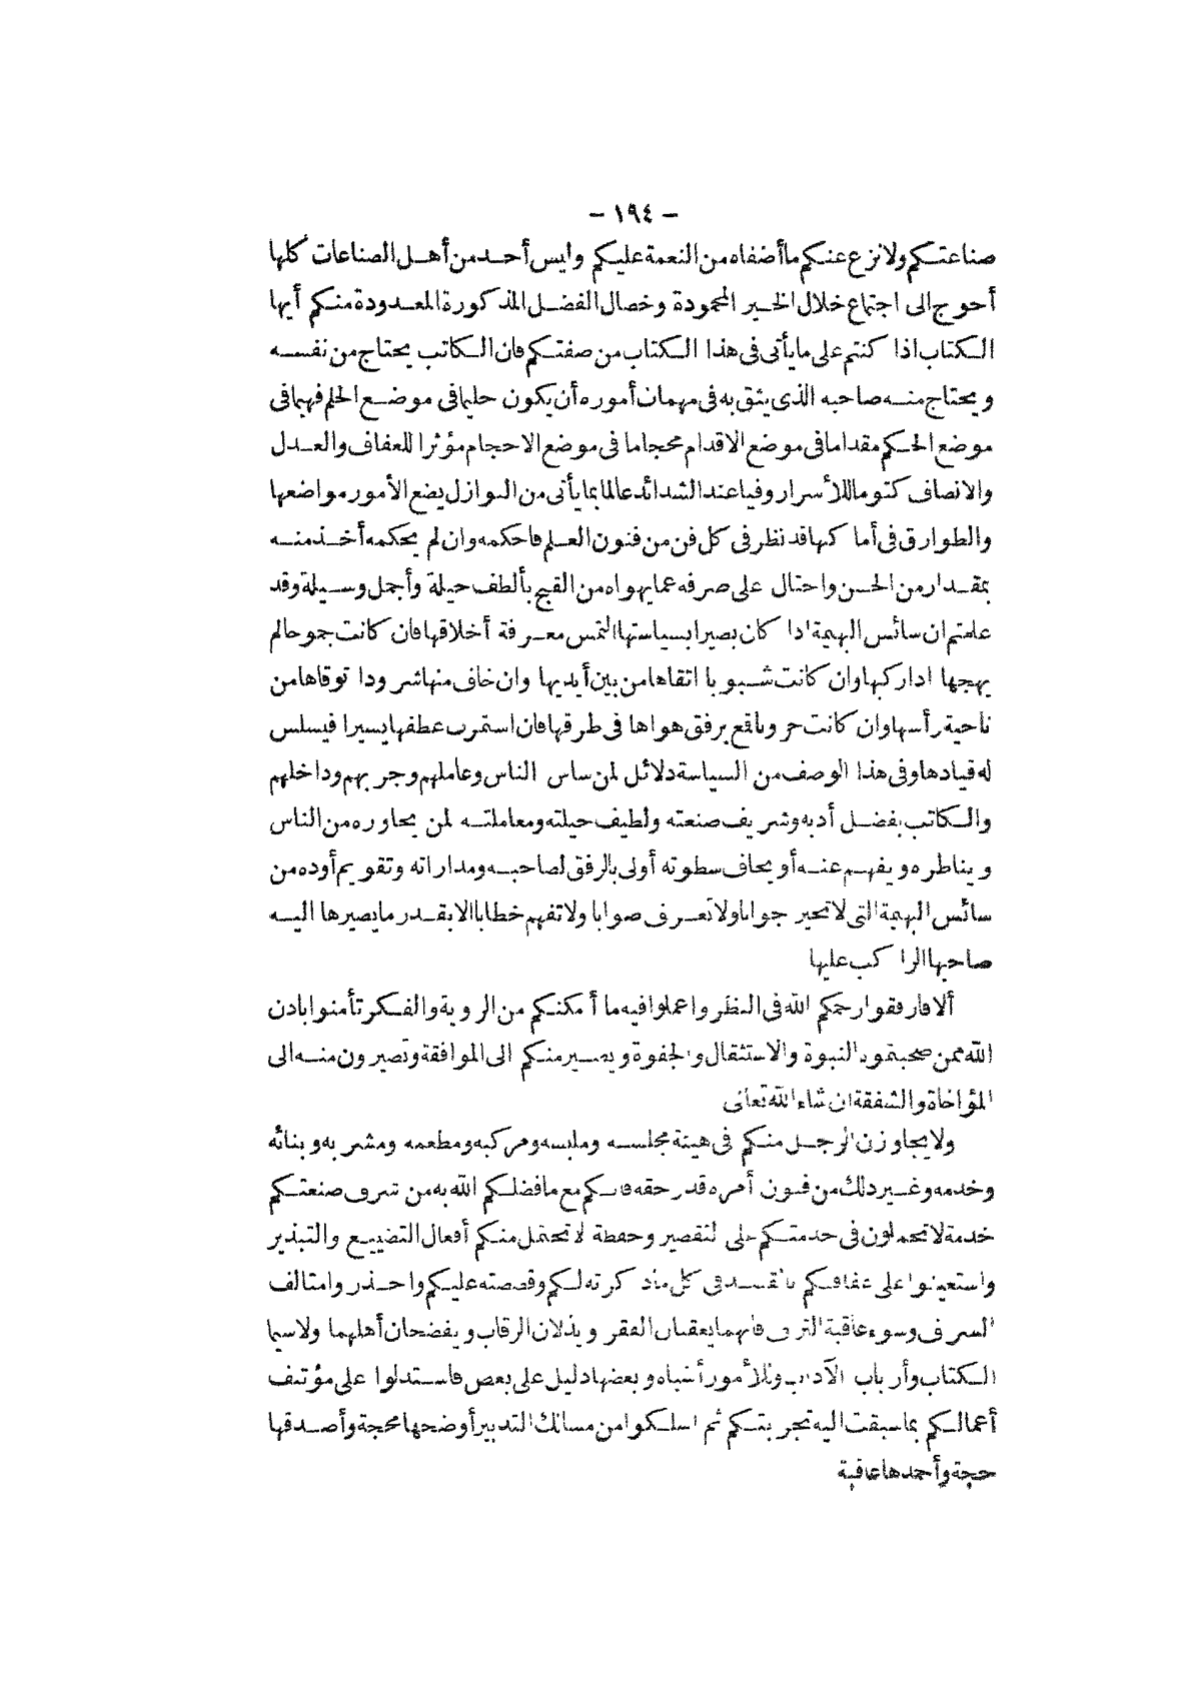 – ١٩٤ –
صناعتكم ولا نزع عنكم ما أضفاه من النعمة عليكم وليس أحد من أهل الصناعات كلها
أحوج الى اجتماع خلال الخير المحمودة وخصال الفضل المذكورة المعدودة منكم أيها
الكتاب اذا كنتم على ما يأتى فى هذا الكتاب من صفتكم فان الكاتب يحتاج من نفسه
ويحتاج منه صاحبه الذى يثق به فى مهمات أموره أن يكون حليما فى موضع الحلم فهيما فى
موضع الحكم مقداما فى موضع الاقدام محجاما فى موضع الاحجام مؤثرا للعفاف والعدل
والانصاف كتوما للأسرار وفيا عند الشدائد عالما بما يأتى من النوازل يضع الأمور مواضعها
والطوارق فى أماكنها قد نظر فى كل فن من فنون العلم فاحكمه وان لم يحكمه أخذ منه
بمقدار من الحسن واحتال على صرفه عما يهواه من القبح بألطف حيلة وأجمل وسيلة وقد
علمتم ان سائس البهيمة اذا كان بصيرا بسياستها التمس معرفة أخلاقها فان كانت جموحا لم
يهجها اذا ركبها وان كانت شبوبا اتقاها من بين أيديها وان خاف منها شرودا توقاها من
ناحية رأسها وان كانت حرونا قمع برفق هواها فى طرقها فان استمرت عطفها يسيرا فيسلس
له قيادها وفى هذا الوصف من السياسة دلائل لمن ساس الناس وعاملهم وجربهم وداخلهم
والكاتب بفضل أدبه وشريف صنعته ولطيف حيلته ومعاملته لمن يحاوره من الناس
ويناظره ويفهم عنه أو يخاف سطوته أولى بالرفق لصاحبه ومداراته وتقويم أوده من
سائس البهيمة التى لا تحير جوابا ولا تعرف صوابا ولا تفهم خطابا الا بقدر ما يصيرها اليه
صاحبها الراكب عليها
ألا فارفقوا رحمكم الله فى النظر واعملوا فيه ما أمكنكم من الروية والفكر تأمنوا باذن
الله ممن صحبتموه النبوة والاستثقال والجفوة ويصير منكم الى الموافقة وتصيرون منه الى
المؤاخاة والشفقة ان شاء الله تعالى
ولا يجاوزن الرجل منكم فى هيئة مجلسه وملبسه ومركبه ومطعمه ومشربه وبنائه
وخدمه وغير ذلك من فنون أمره قدر حقه فانكم مع ما فضلكم الله به من شرف صنعتكم
خدمة لا تحملون فى خدمتكم على التقصير وحفظة لا تحتمل منكم أفعال التضييع والتبذير
واستعينوا على عفافكم بالقصد فى كل ما ذكرته لكم وقصصته عليكم واحذروا متالف
السرف وسوء عاقبة الترف فانهما يعقبان الفقر ويذلان الرقاب ويفضحان أهلهما ولا سيما
الكتاب وأرباب الآداب وللأمور أشباه وبعضها دليل على بعض فاستدلوا على مؤتنف
أعمالكم بما سبقت اليه تجربتكم ثم اسلكوا من مسالك التدبير أوضحها محجة وأصدقها
حجة وأحمدها عاقبة